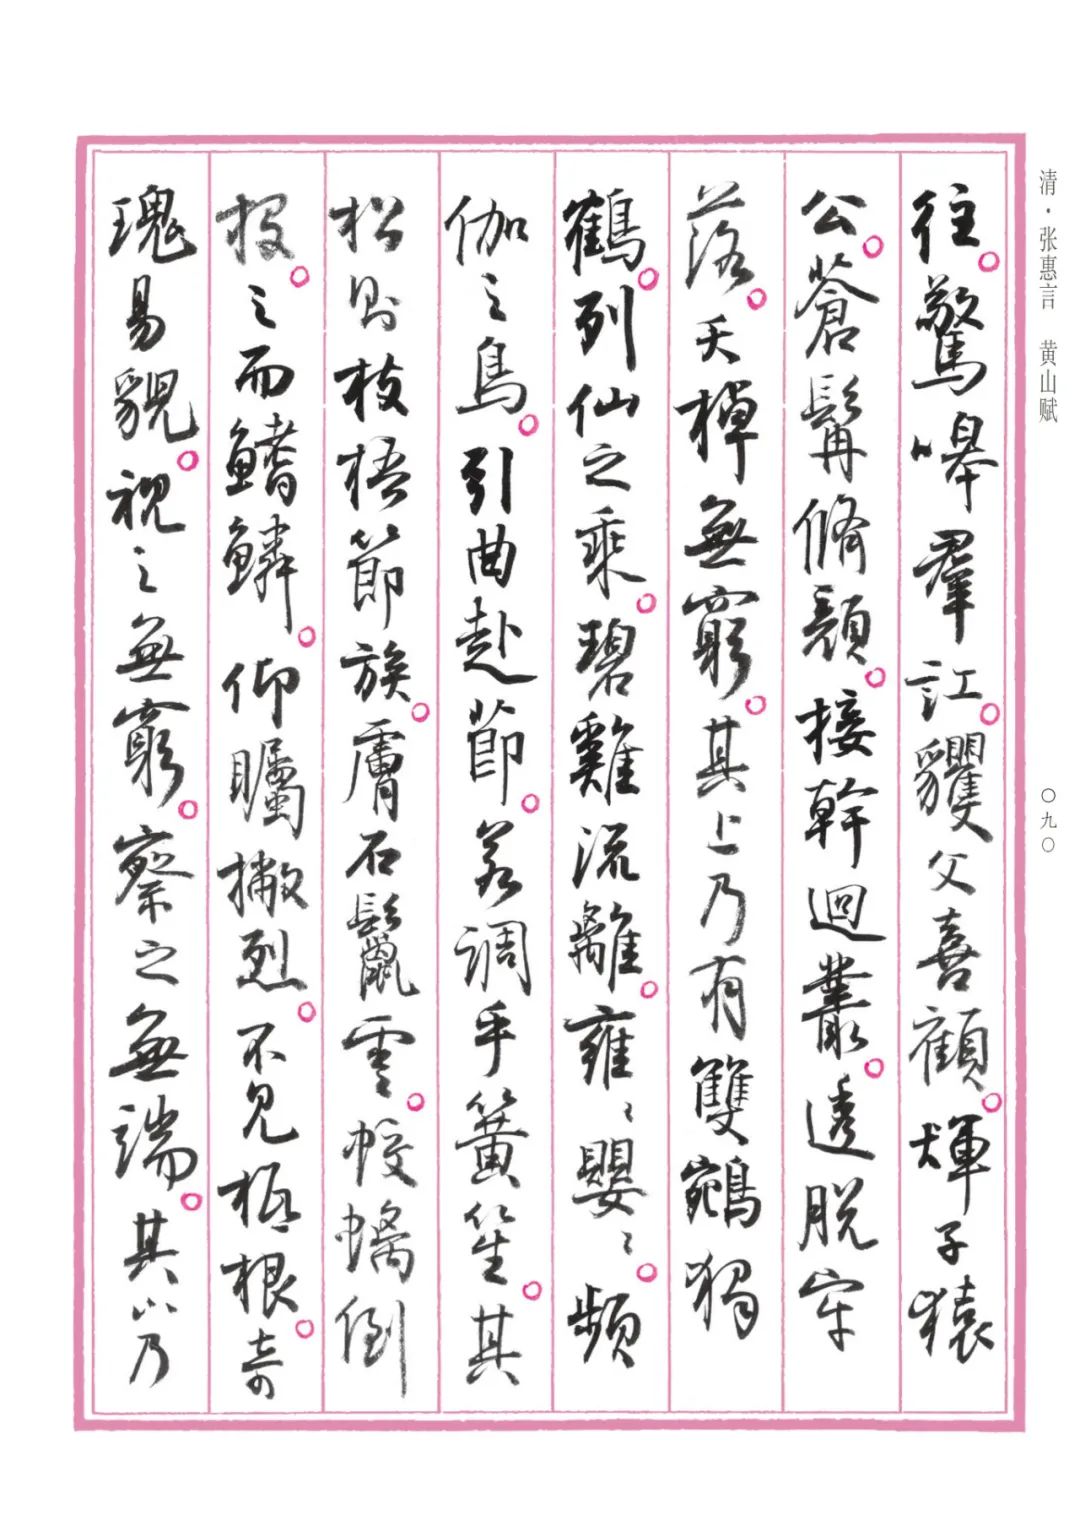 清·张惠言 黄山赋
往。驚嘷羣訌。貜父喜顧。㺔子猿
公。蒼髯脩額。接幹迴叢。透脱牢
落。夭棹無窮。其上乃有雙鵷獨
鶴。列仙之乘。碧雞流離。雍〻嬰〻。頻
伽之鳥。引曲赴節。若調乎簧笙。其
松則枝梧節族。膚石鬣雲。蛟螭倒
投。之而鱔鱗。仰矚撇烈。不見柢根。奇
瑰易貌。視之無窮。察之無端。其卉乃
〇九〇